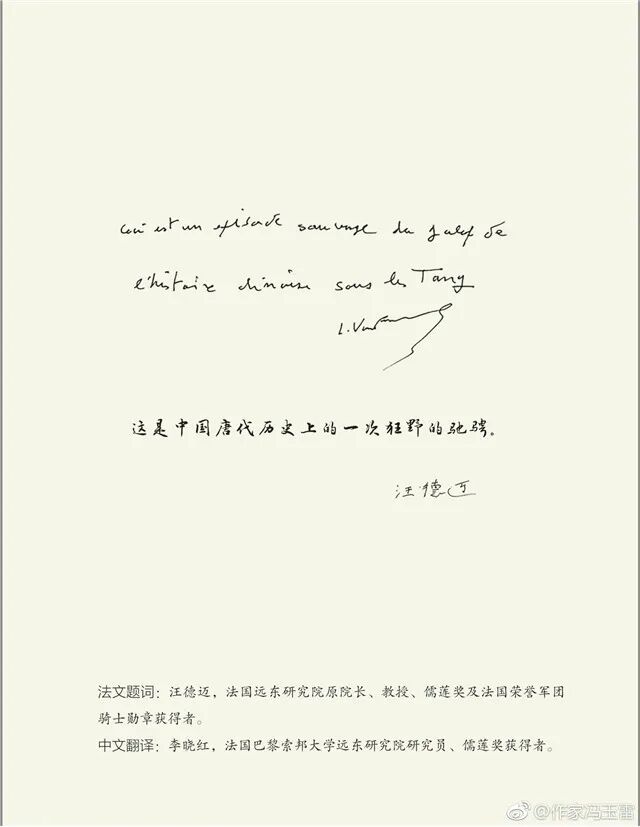 Ceci est un episode sauvage du galop de
l'histoire chinoise sous les Tang
L.
这是中国唐代历史上的一次狂野的驰骋。
汪德迈
法文题词：汪德迈，法国远东研究院原院长、教授、儒莲奖及法国荣誉军团
骑士勋章获得者。
中文翻译：李晓红，法国巴黎索邦大学远东研究院研究员、儒莲奖获得者。
@作家冯玉雷